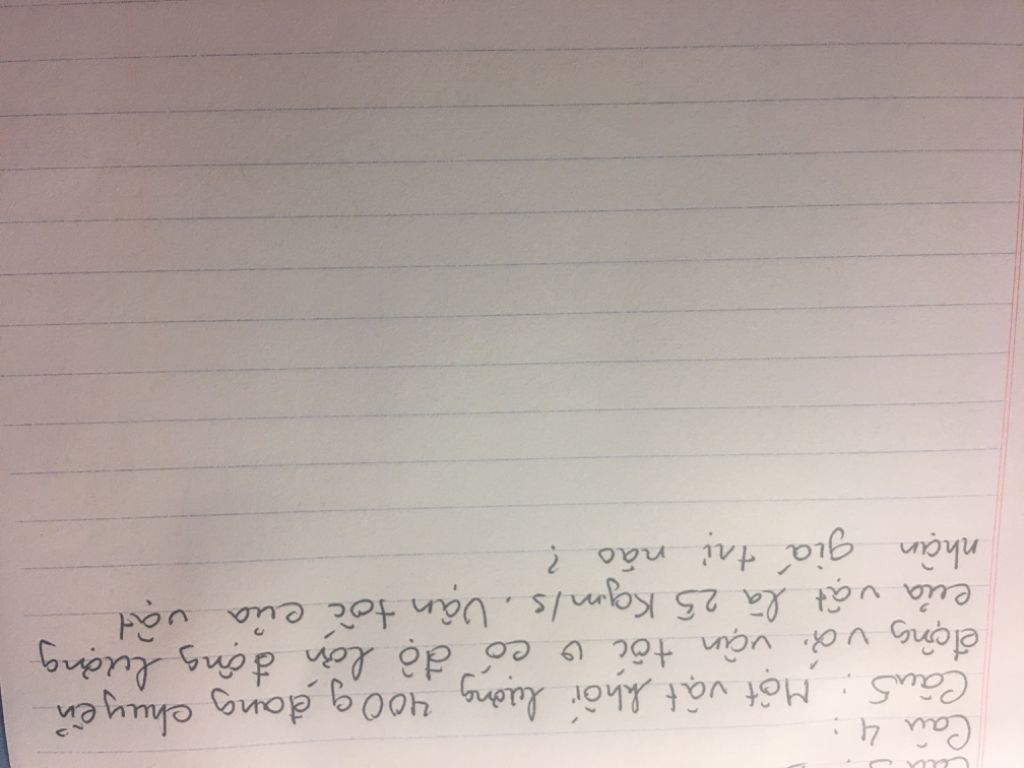 Câu 4 :
Câu 5 : Một vật khối lượng 400g đang chuyển
động với vận tốc v có độ lớn động lượng
của vật là 25 Kgm/s. Vận tốc của vật
nhận giá trị nào ?